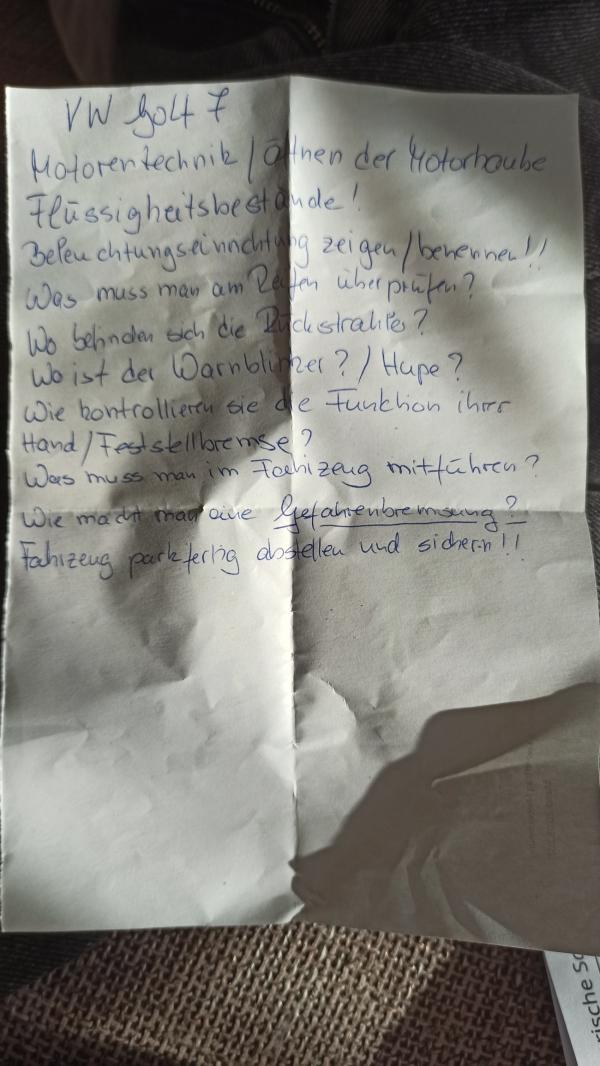 VW Golf 7
Motorentechnik / Öffnen der Motorhaube
Flüssigkeitsbestände!
Beleuchtungseinrichtung zeigen/benennen!!
Was muss man am Reifen überprüfen?
Wo befinden sich die Rückstrahler?
Wo ist der Warnblinker? / Hupe?
Wie kontrollieren sie die Funktion ihrer
Hand/Feststellbremse?
Was muss man im Fahrzeug mitführen?
Wie macht man eine Gefahrenbremsung?
Fahrzeug parkfertig abstellen und sichern!!
rische Sc